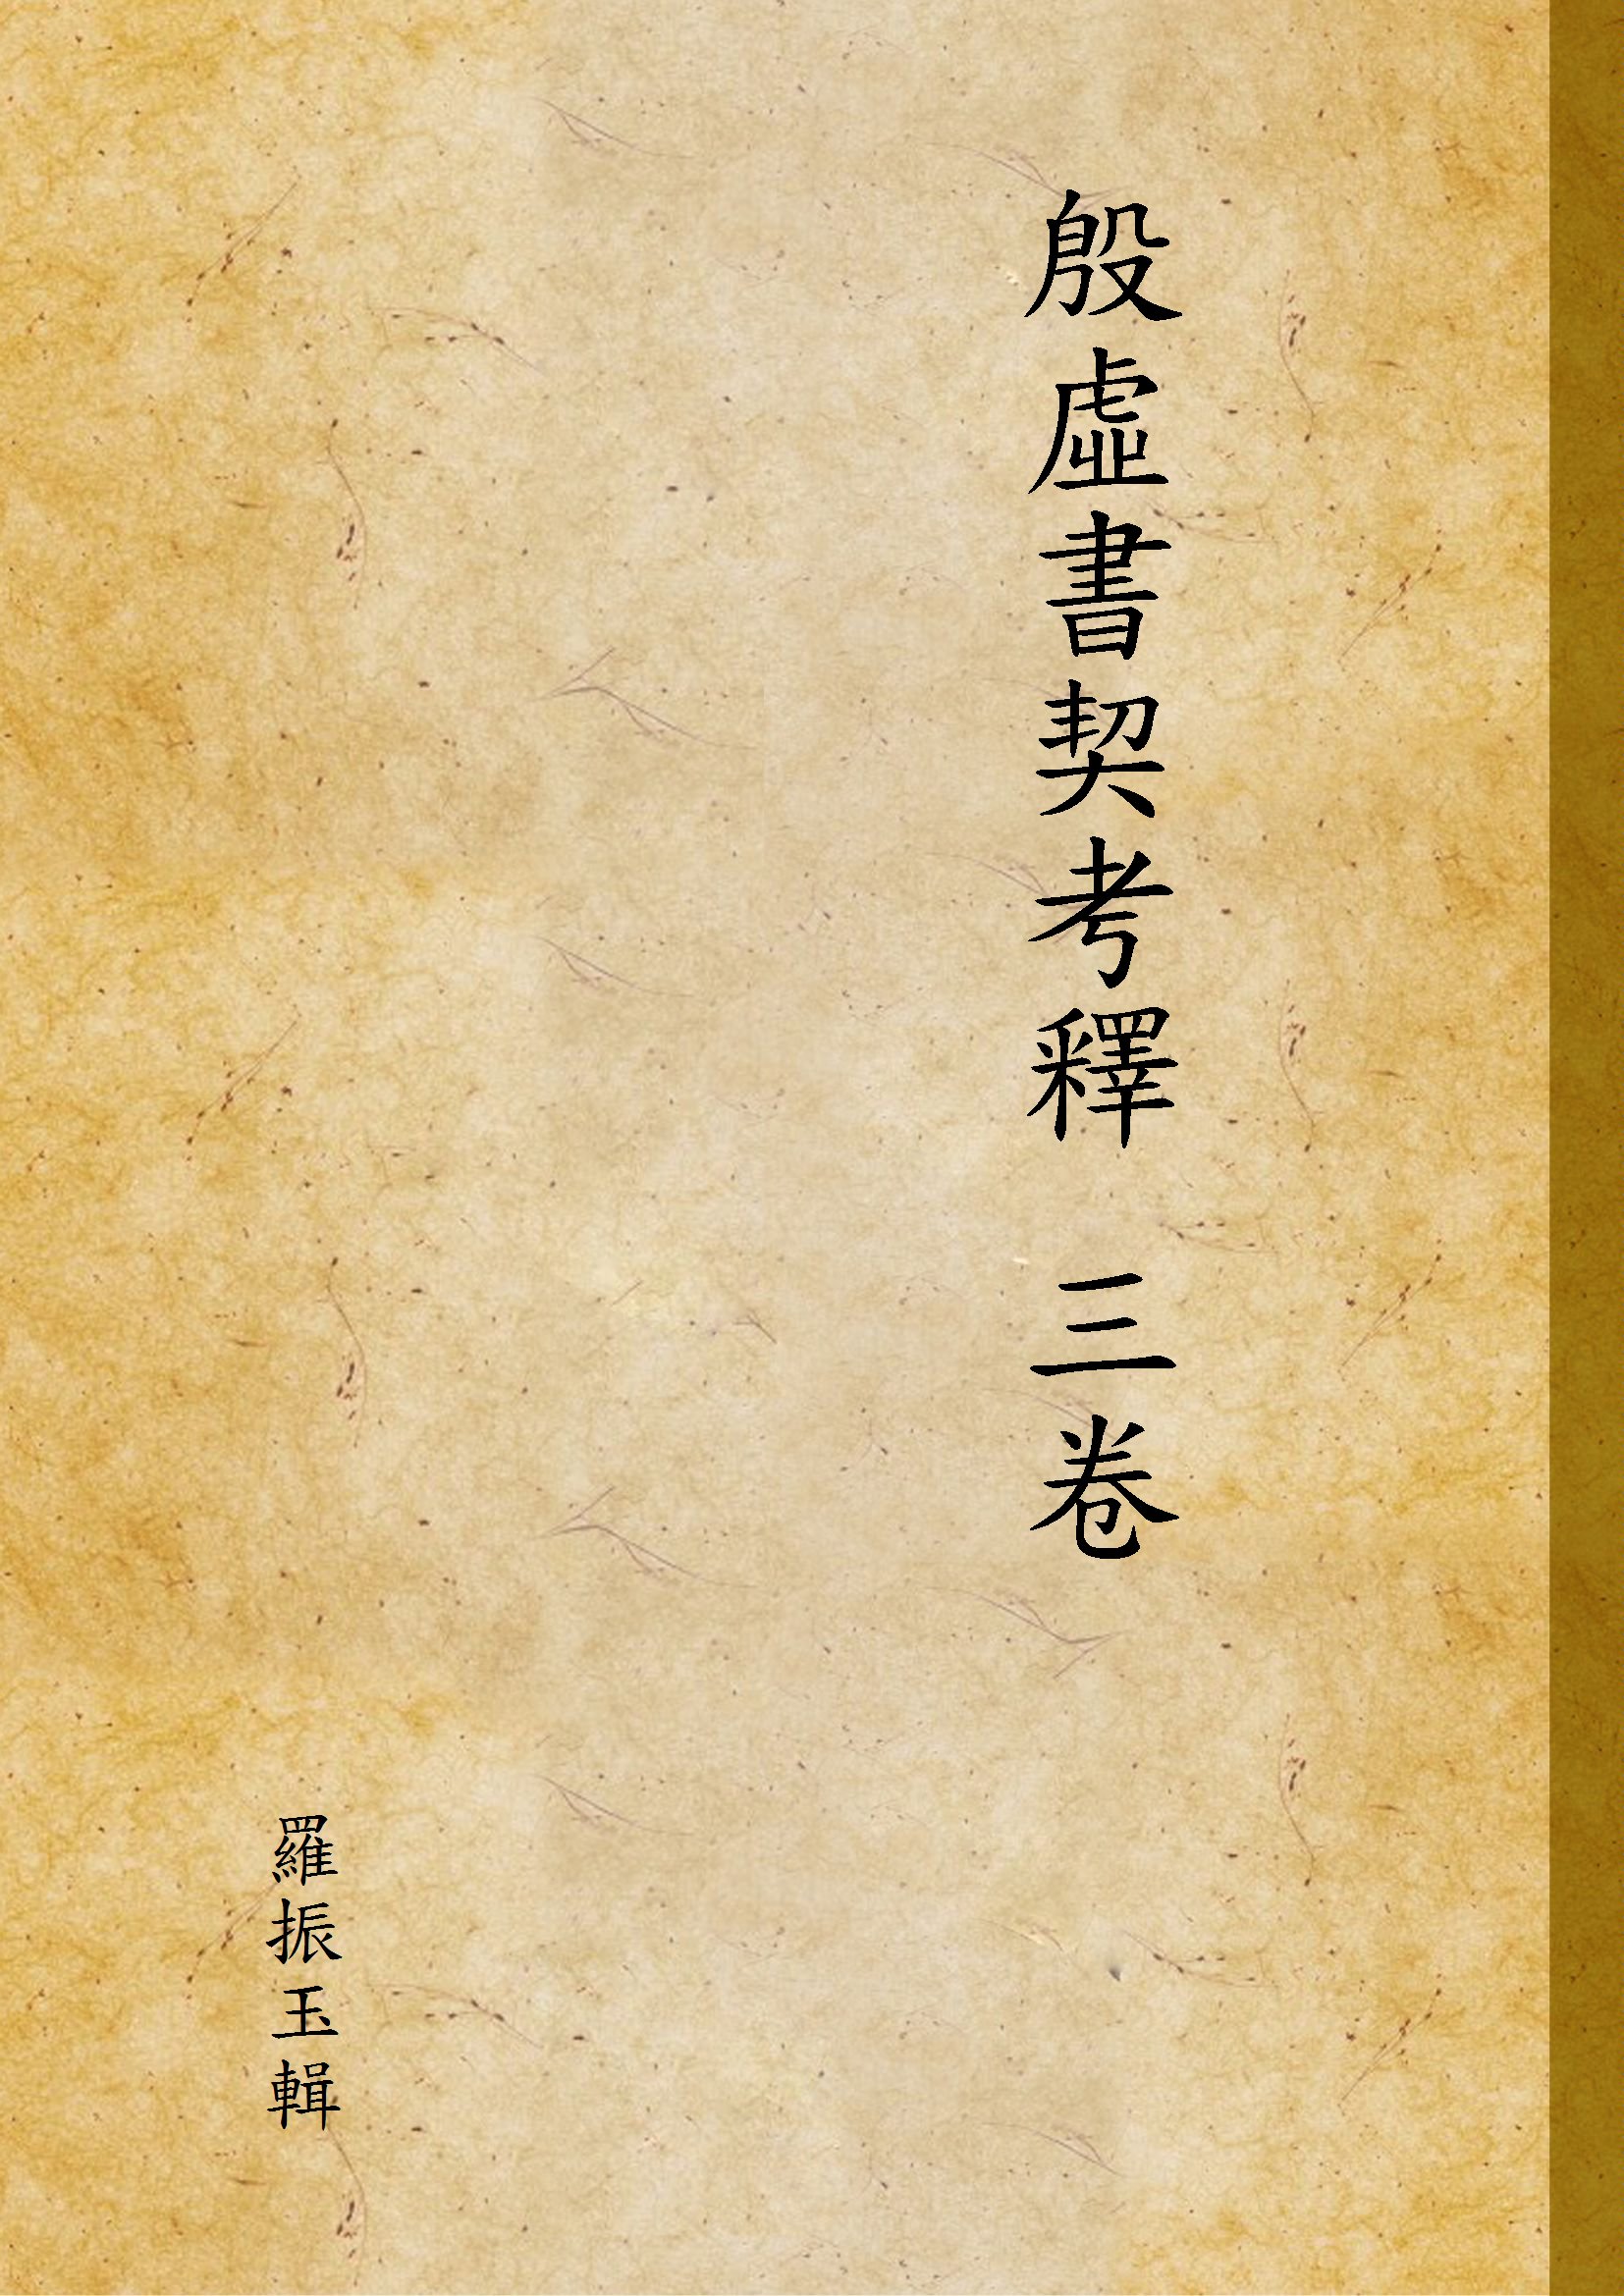 殷虛書契考釋 三卷
羅振玉輯